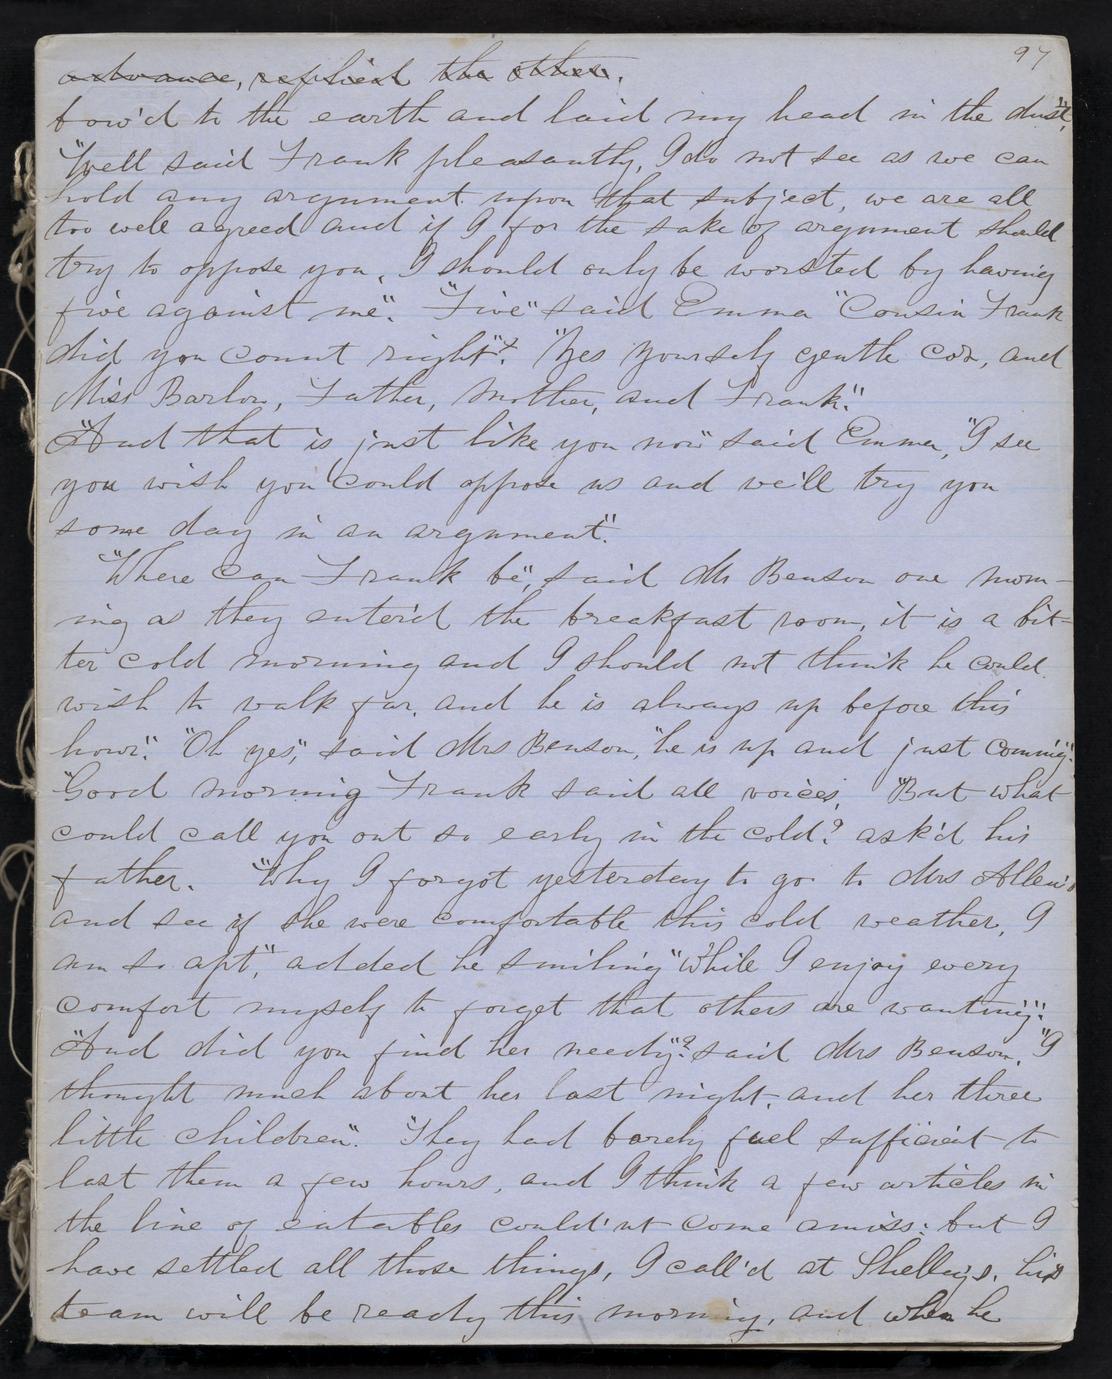 97
advance, replied the other.
bow'd to the earth and laid my head in the dust,"
"Well said Frank pleasantly, I do not see as we can
hold any argument upon that subject, we are all
too well agreed and if I for the sake of argument should
try to oppose you, I should only be worsted by having
five against me". "Five" said Emma "Cousin Frank
did you count right"? "Yes Yourself gentle coz, and
Miss Barlow, Father, Mother, and Frank".
"And that is just like you now" said Emma, "I see
you wish you could oppose us and we'll try you
some day in an argument".
"Where can Frank be", said Mr Benson one morn-
ing as they enter'd the breakfast room, it is a bit-
ter cold morning and I should not think he could
wish to walk far, and he is always up before this
hour". "Oh yes", said Mrs Benson, "he is up and just coming".
"Good morning Frank said all voices, "But what
could call you out so early in the cold? ask'd his
father. "Why I forgot yesterday to go to Mrs Allen's
and see if she were comfortable this cold weather, I
am so apt", added he smiling "while I enjoy every
comfort myself to forget that others are wanting"!
"And did you find her needy"? said Mrs Benson, "I
thought much about her last night, and her three
little children". "They had barely fuel sufficient to
last them a few hours, and I think a few articles in
the line of eatables could'nt come amiss: but I
have settled all those things, I call'd at Shelley's, his
team will be ready this morning, and when he